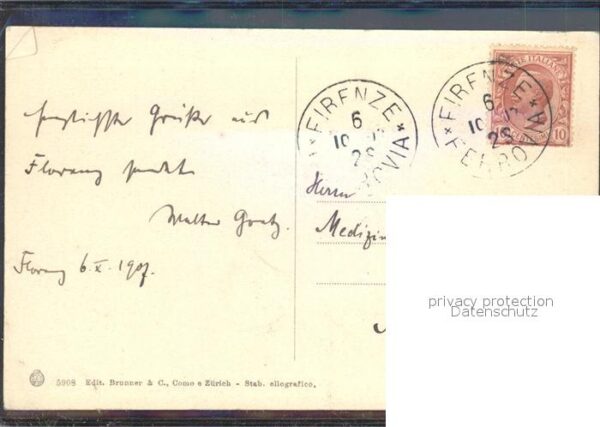 herzlichste Grüße aus
Florenz sendet
Walter Goetz.
Florenz 6. X. 1907.
* FIRENZE *
6
10
2S
OVIA
* FIRENZE *
6
10
2S
FERROVIA
POSTE ITALIANE
10
Herrn
Medizin
privacy protection
Datenschutz
5908 Edit. Brunner & C., Como e Zürich - Stab. eliografico.